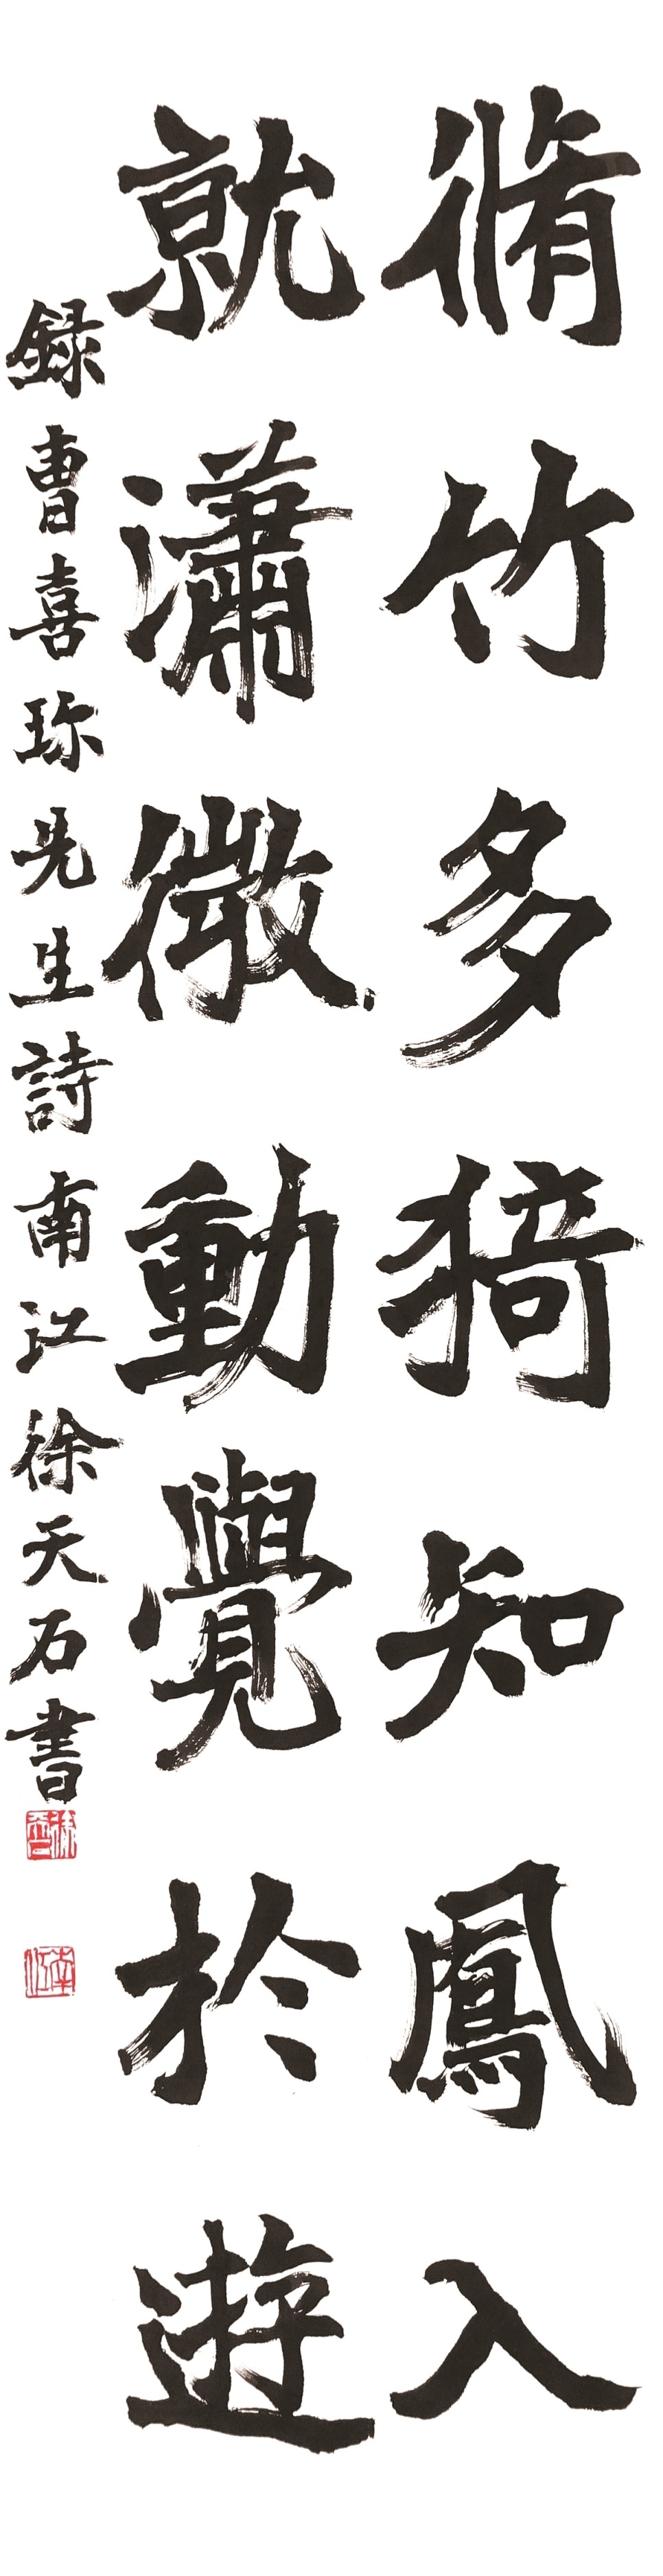 脩竹多猗知鳳入
就瀟微動覺於遊
録曹喜珎先生詩南江徐天石書